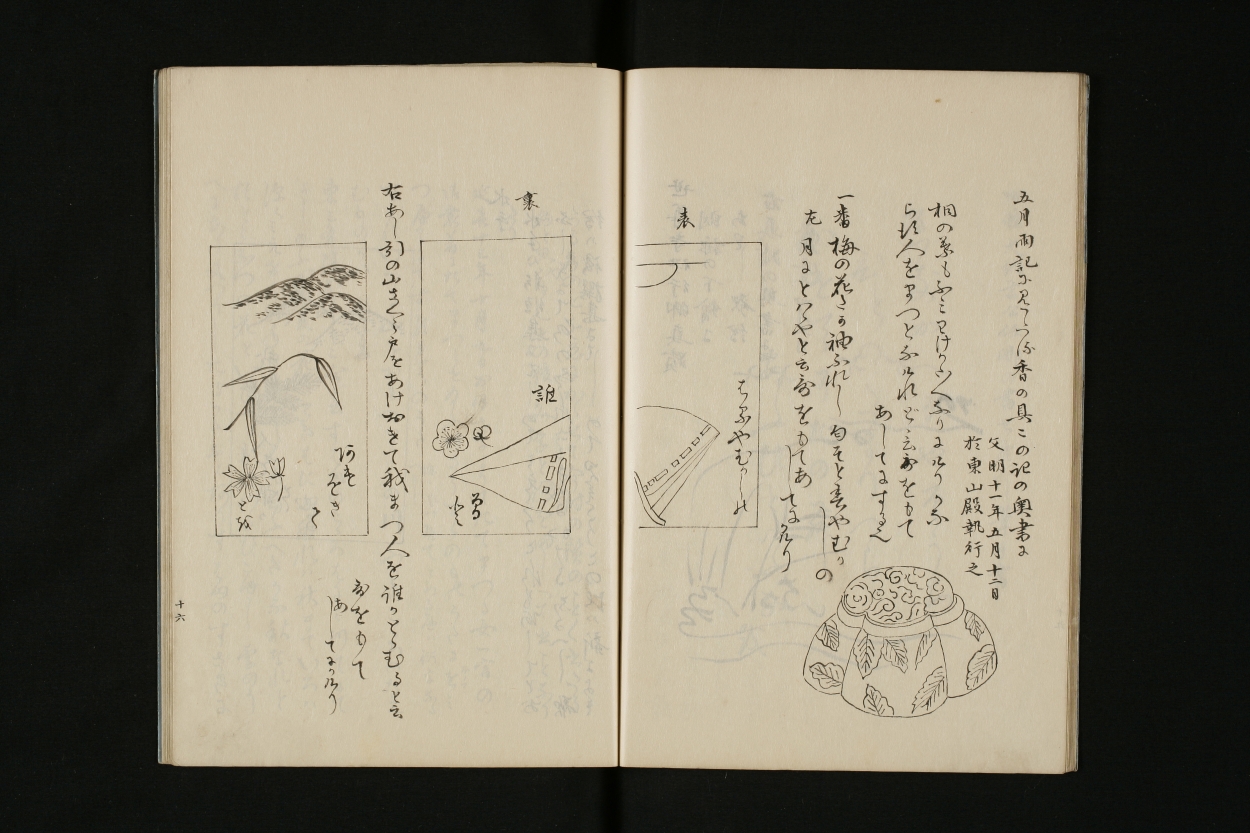 五月雨記に見えたる香の具この記の奥書に
文明十一年五月十二日
於東山殿執行之
桐の葉もふみわけかたくなりにけりかな
らす人をまつとなけれと云歌をもて
あしてにする也
一番梅の花たか袖ふれし匂そと春やむかしの
左 月にとはゝやと云歌をもてあしてなり
表
はるやむかしの
裏
誰
右あし引の山さくら戸をあけおきて我まつ人を誰かとゝむると云
歌をもて
あしてなり
十六